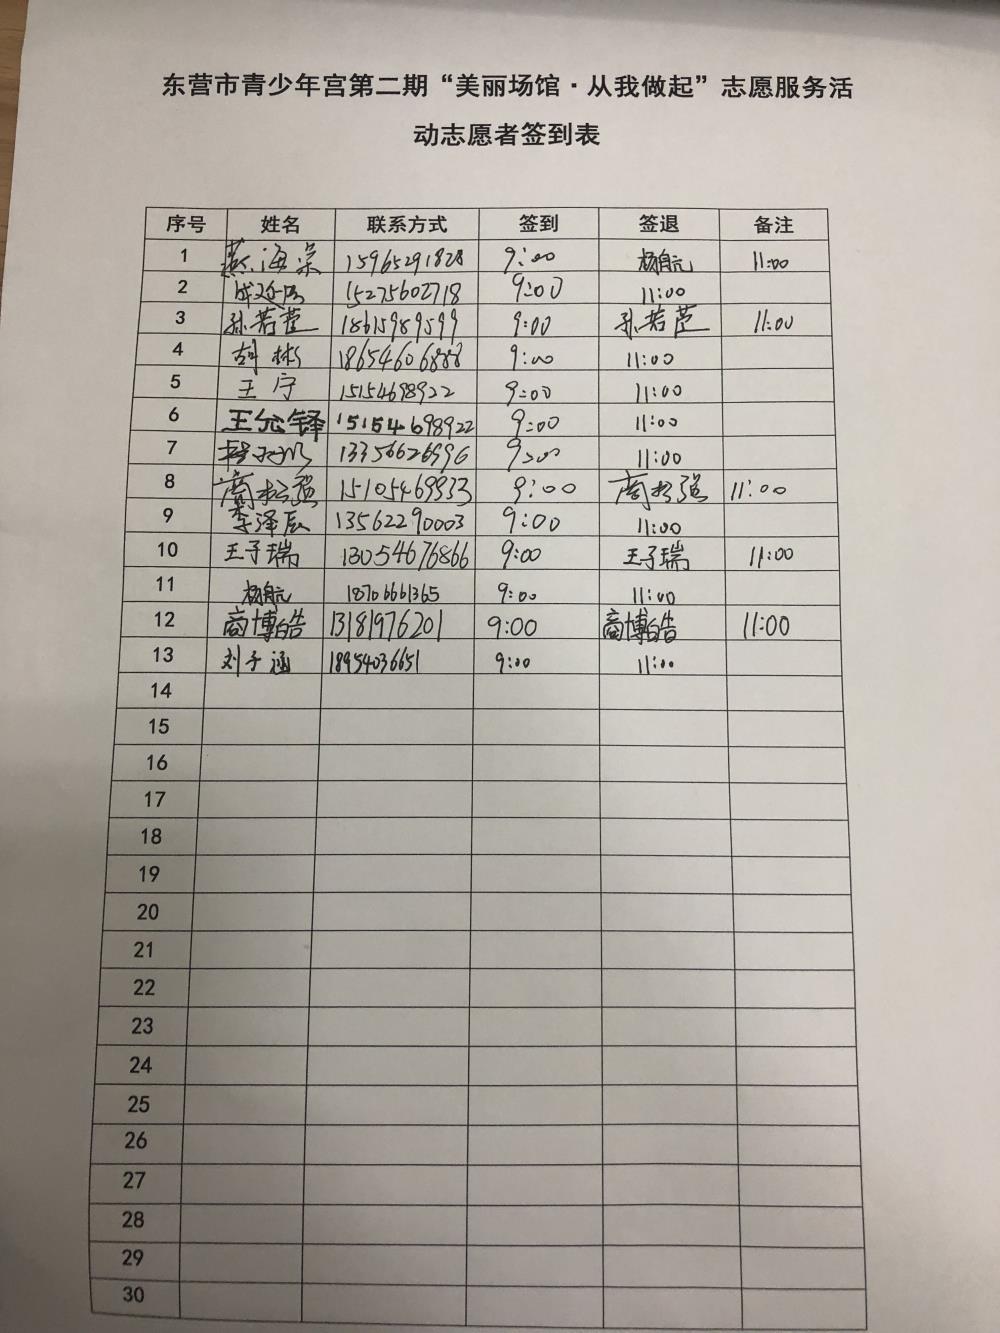 东营市青少年宫第二期“美丽场馆·从我做起”志愿服务活
动志愿者签到表
序号 姓名 联系方式 签到 签退 备注
1 燕海荣 15965291828 9:00 杨自元 11:00
2 15275602718 9:00 11:00
3 孙若萱 18615989599 9:00 孙若萱 11:00
4 胡彬 18654606888 9:00 11:00
5 王宁 15154698922 9:00 11:00
6 王允铎 15154698922 9:00 11:00
7 13356626996 9:00 11:00
8 商松强 15105469933 9:00 商松强 11:00
9 李泽辰 13562290003 9:00 11:00
10 王子瑞 13054676866 9:00 王子瑞 11:00
11 18706661365 9:00 11:00
12 商博皓 13181976201 9:00 商博皓 11:00
13 刘子涵 18954036651 9:00 11:00
14
15
16
17
18
19
20
21
22
23
24
25
26
27
28
29
30